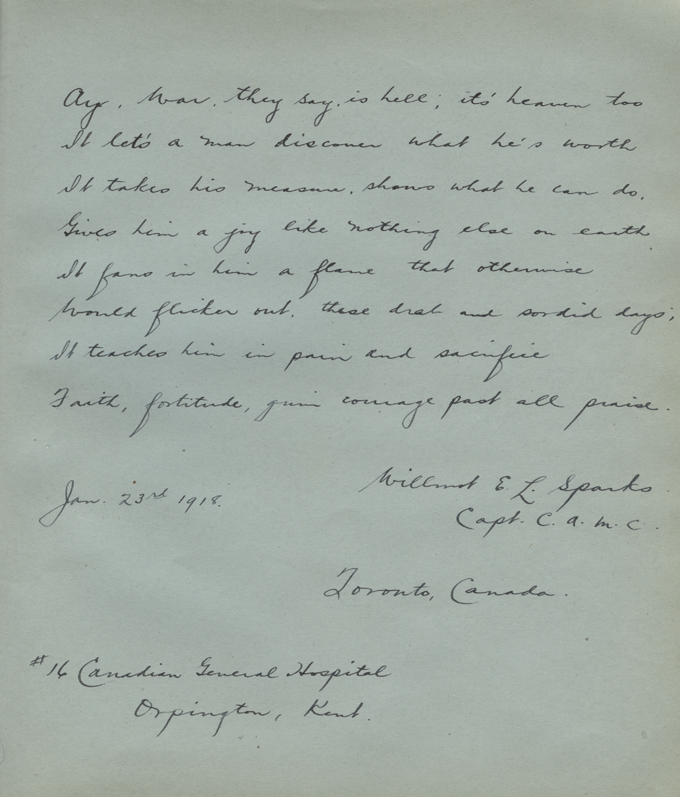 Ay, War, they say, is hell; it's heaven too
It let's a man discover what he's worth
It takes his measure, shows what he can do,
Gives him a joy like nothing else on earth.
It fans in him a flame that otherwise
Would flicker out, these drab and sordid days;
It teaches him in pain and sacrifice
Faith, fortitude, grim courage past all praise.
Jan. 23rd 1918.
Willmot E. L. Sparks.
Capt. C. A. M. C.
Toronto, Canada.
#16 Canadian General Hospital
Orpington, Kent.